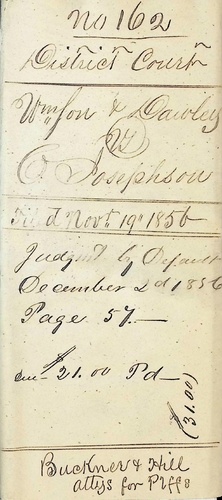 No 162
District Court
& Dawley
vs
C Josephson
Fil'd Novr. 19th 1856
Judgmt by Default
December 2d 1856
Page 57.—
$31.00 Pd—
($31.00)
Buckner & Hill
attys for Plffs